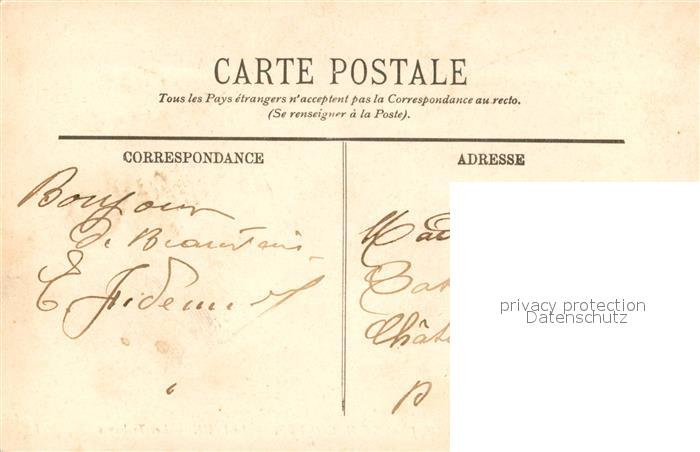 CARTE POSTALE
Tous les Pays étrangers n'acceptent pas la Correspondance au recto.
(Se renseigner à la Poste).
CORRESPONDANCE
ADRESSE
Bonjour
de
E.
Mad
Châte
privacy protection
Datenschutz